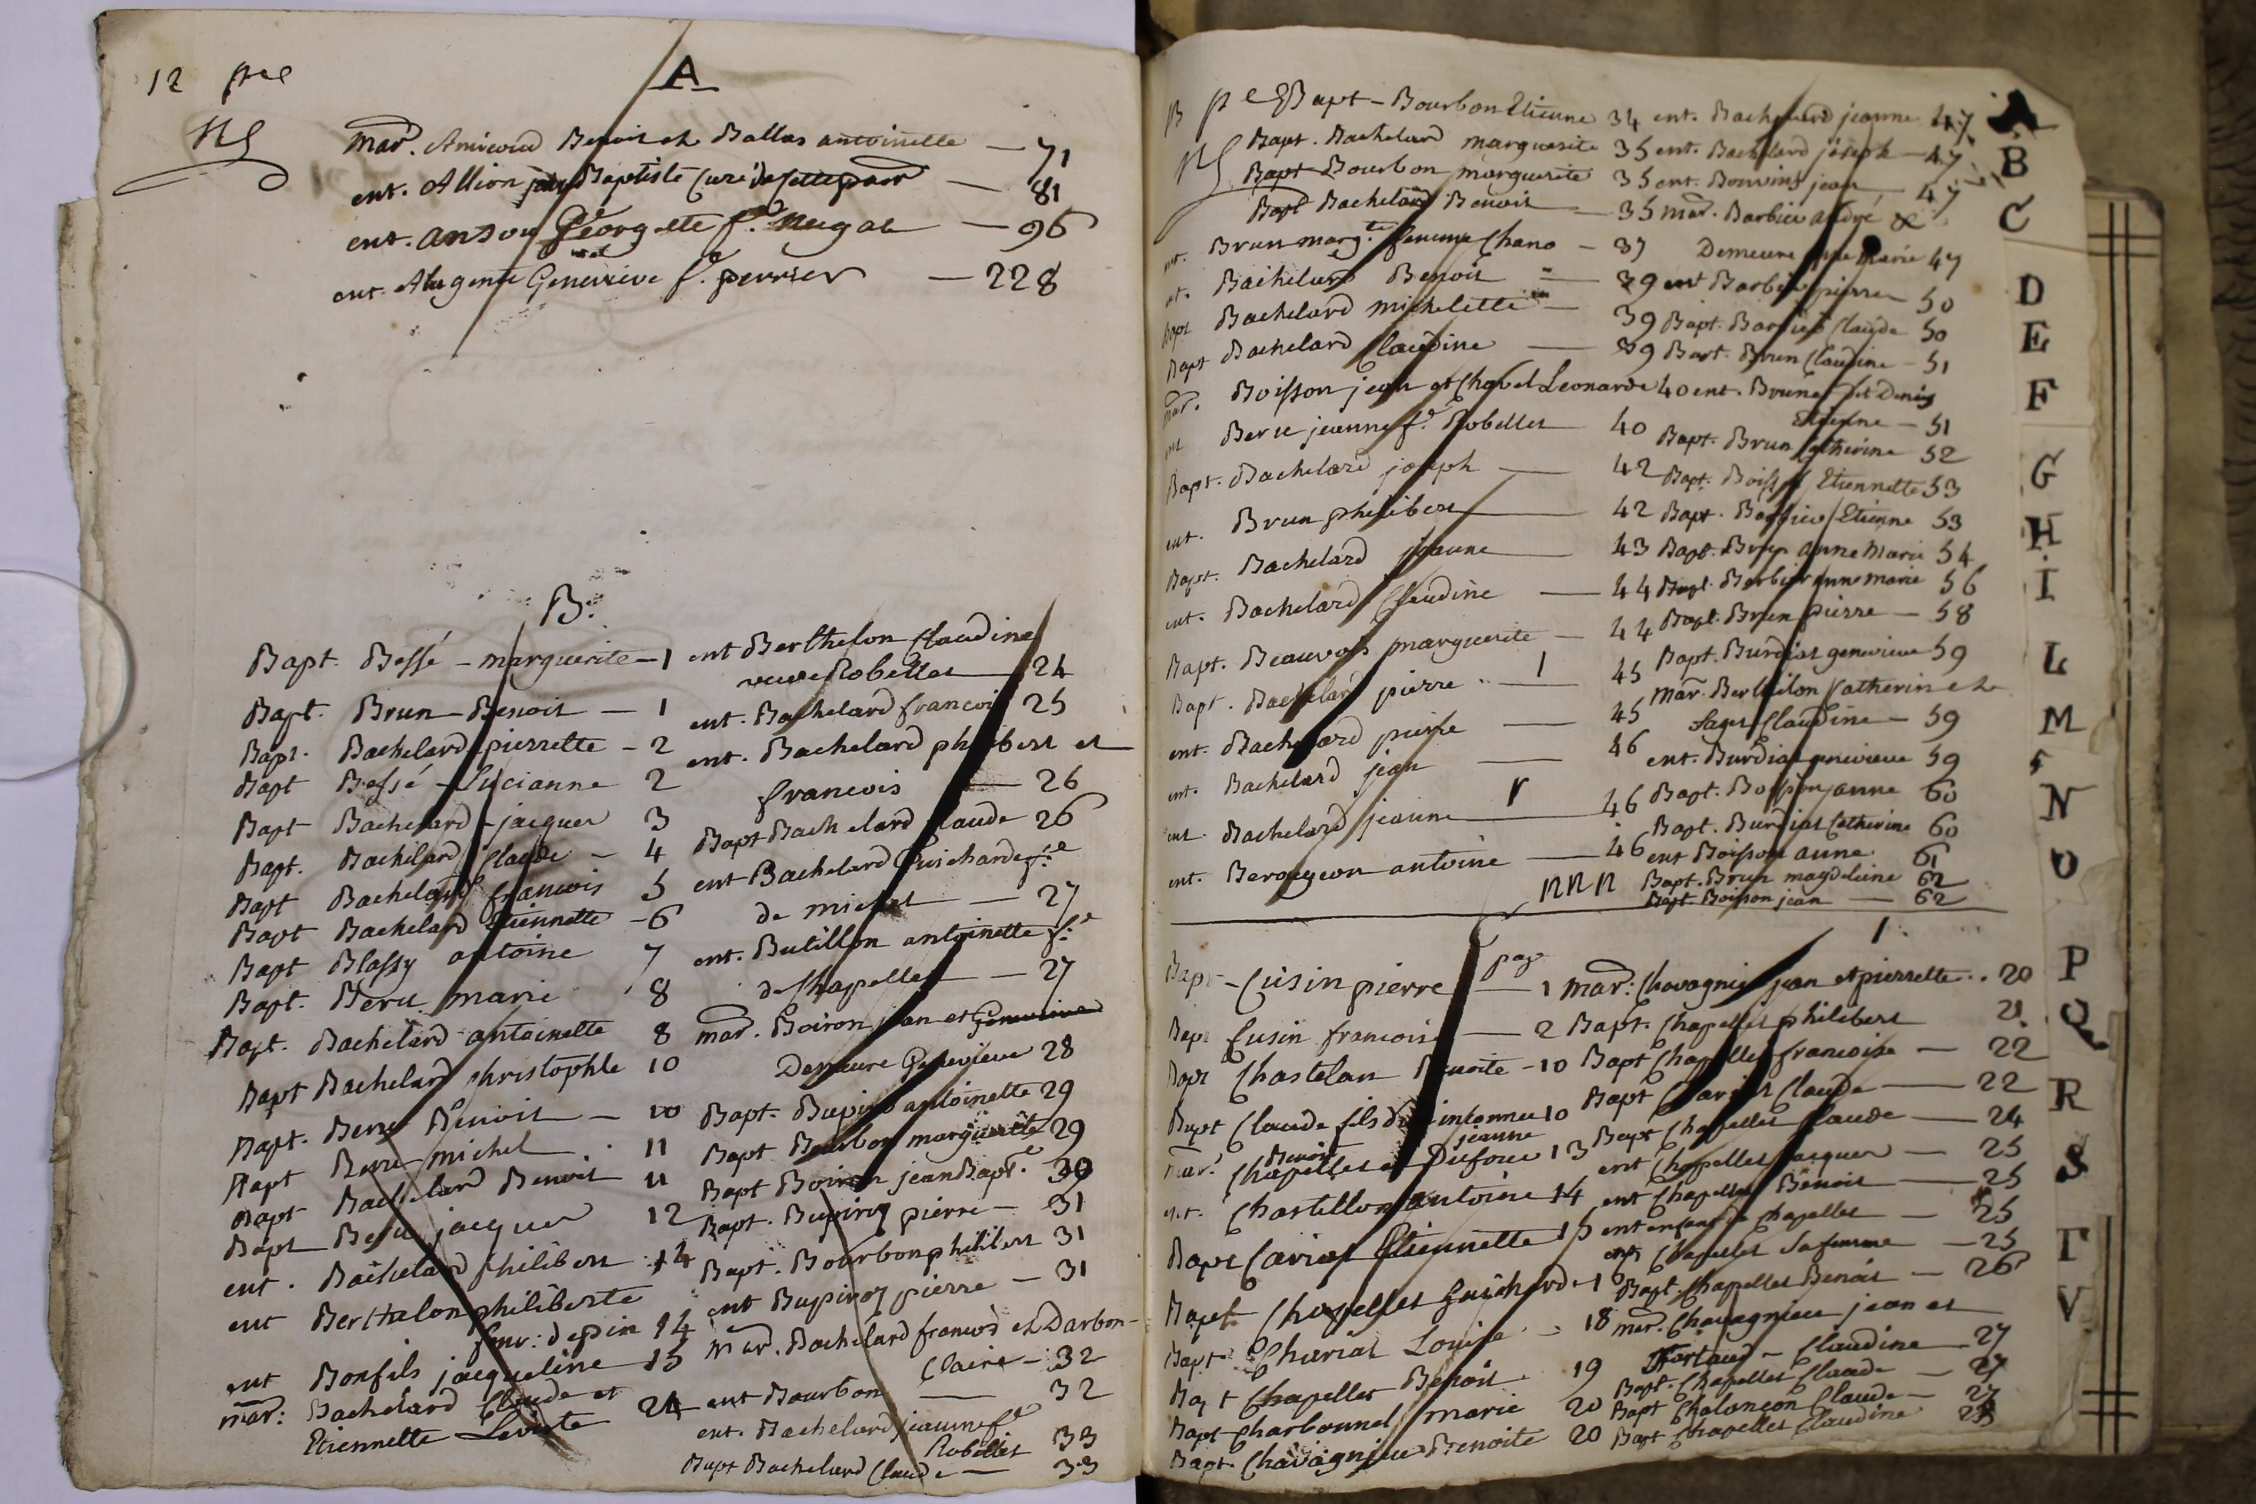 12
A
Mar. Benoit et Ballas antoinette — 71
ent. Allion Baptiste Curé de cette — 81
ent. Georgette f.e — 96
ent. Genevieve f.e perrier — 228
B.
Bapt. Bessé - marguerite - 1
Bapt. Brun - Benoit — 1
Bapt. Bachelard pierrette - 2
Bapt Bessé - 2
Bapt Bachelard - jacques 3
Bapt. Bachelard Claude - 4
Bapt Bachelard francois 5
Bapt Bachelard Etiennette - 6
Bapt Blassy antoine 7
Bapt. Beru marie 8
Bapt. Bachelard antoinette 8
Bapt Bachelard christophle 10
Bapt. Beru Benoit — 10
Bapt Beru michel 11
Bapt Bachelard Benoit 11
Bapt Beru jacques 12
ent. Bachelard philibert 14
ent Berthelon philiberte
14
ent Bonfils jacqueline 15
mar: Bachelard Claude et
Etiennette 24
ent Berthelon Claudine
veuve Robellet 24
ent. Bachelard francois 25
ent. Bachelard philibert et
francois — 26
Bapt Bachelard Claude 26
ent Bachelard Guicharde f.e
de michel — 27
ent. Butillon antoinette f.e
de Chapelles — 27
mar. Boiron jean et Genevieve
Demeure Genevieve 28
Bapt. antoinette 29
Bapt Bourbon marguerite 29
Bapt Boiron jean Bapt.e 30
Bapt. pierre — 31
Bapt. Bourbon philibert 31
ent pierre — 31
Mar. Bachelard francois et Darbon-
Claire - 32
ent Bourbon — 32
ent. Bachelard jeanne f.e
Robellet 33
Bapt Bachelard Claude — 33
Bapt - Bourbon Etienne 34
Bapt. Bachelard marguerite 35
Bapt Bourbon marguerite 35
Bapt Bachelard Benoit — 35
ent. Brun marg.te femme Chano - 37
Bachelard Benoit — 39
Bapt Bachelard michelette — 39
Bapt Bachelard Claudine — 39
mar. Boisson jean et Chavel Leonarde 40
ent Beru jeanne f.e Robellet 40
Bapt. Bachelard joseph — 42
ent. Brun philibert — 42
Bapt. Bachelard jeanne — 43
ent. Bachelard Claudine — 44
Bapt. Beauvois marguerite — 44
Bapt. Bachelard pierre — 45
ent. Bachelard pierre — 45
ent. Bachelard jean — 46
ent Bachelard jeanne — 46
ent. Berougeon antoine — 46
ent. Bachelard jeanne 47
ent. Bachelard joseph - 47
ent. jean — 47
mar. Barbier andré &
Demeure marie 47
ent Barbier pierre 50
Bapt. Barbier Claude 50
Bapt. Brun Claudine - 51
ent. Brune dit Denis
Etienne - 51
Bapt. Brun Catherine 52
Bapt. Boisson Etiennette 53
Bapt. Barbier Etienne 53
Bapt. Brun anne Marie 54
Bapt. Barbier anne marie 56
Bapt. Brun pierre — 58
Bapt. Burdiat genevieve 59
Mar. Berthilon Catherin et
Claudine — 59
ent. Burdiat genevieve 59
Bapt. Boisson anne 60
Bapt. Burdiat Catherine 60
ent Boisson anne 61
Bapt. Brun magdeleine 62
Bapt Boisson jean — 62
pag
Bapt - Cusin pierre — 1
Bapt Cusin francoise — 2
Bapt Chastelan Benoite - 10
Bapt Claude fils d'un inconnu 10
mar. Chapelles Benoit et Dufour jeanne 13
ent. Chastillon antoine 14
Bapt Cariat Etiennette 15
Bapt Chapelles Guicharde 16
Bapt Chariat Louise - 18
Bapt Chapelles Benoit 19
Bapt Charbonnel marie 20
Bapt. Chavagnieu Benoite 20
mar: Chavagnieu jean et pierrette . 20
Bapt. Chapelles philibert 21
Bapt Chapelles francoise — 22
Bapt Chariat Claude — 22
Bapt Chapelles Claude — 24
ent Chapelles jacques — 25
ent Chapelles Benoit — 25
ent enfant de Chapelles — 25
ent Chapelles sa femme — 25
Bapt. Chapelles Benoit — 26
mar. Chavagnieu jean et
Fortaud - Claudine — 27
Bapt. Chapelles Claude — 27
Bapt Chalancon Claude — 27
Bapt Chapelles Claudine 28
A
B
C
D
E
F
G
H
I
L
M
N
O
P
Q
R
S
T
V